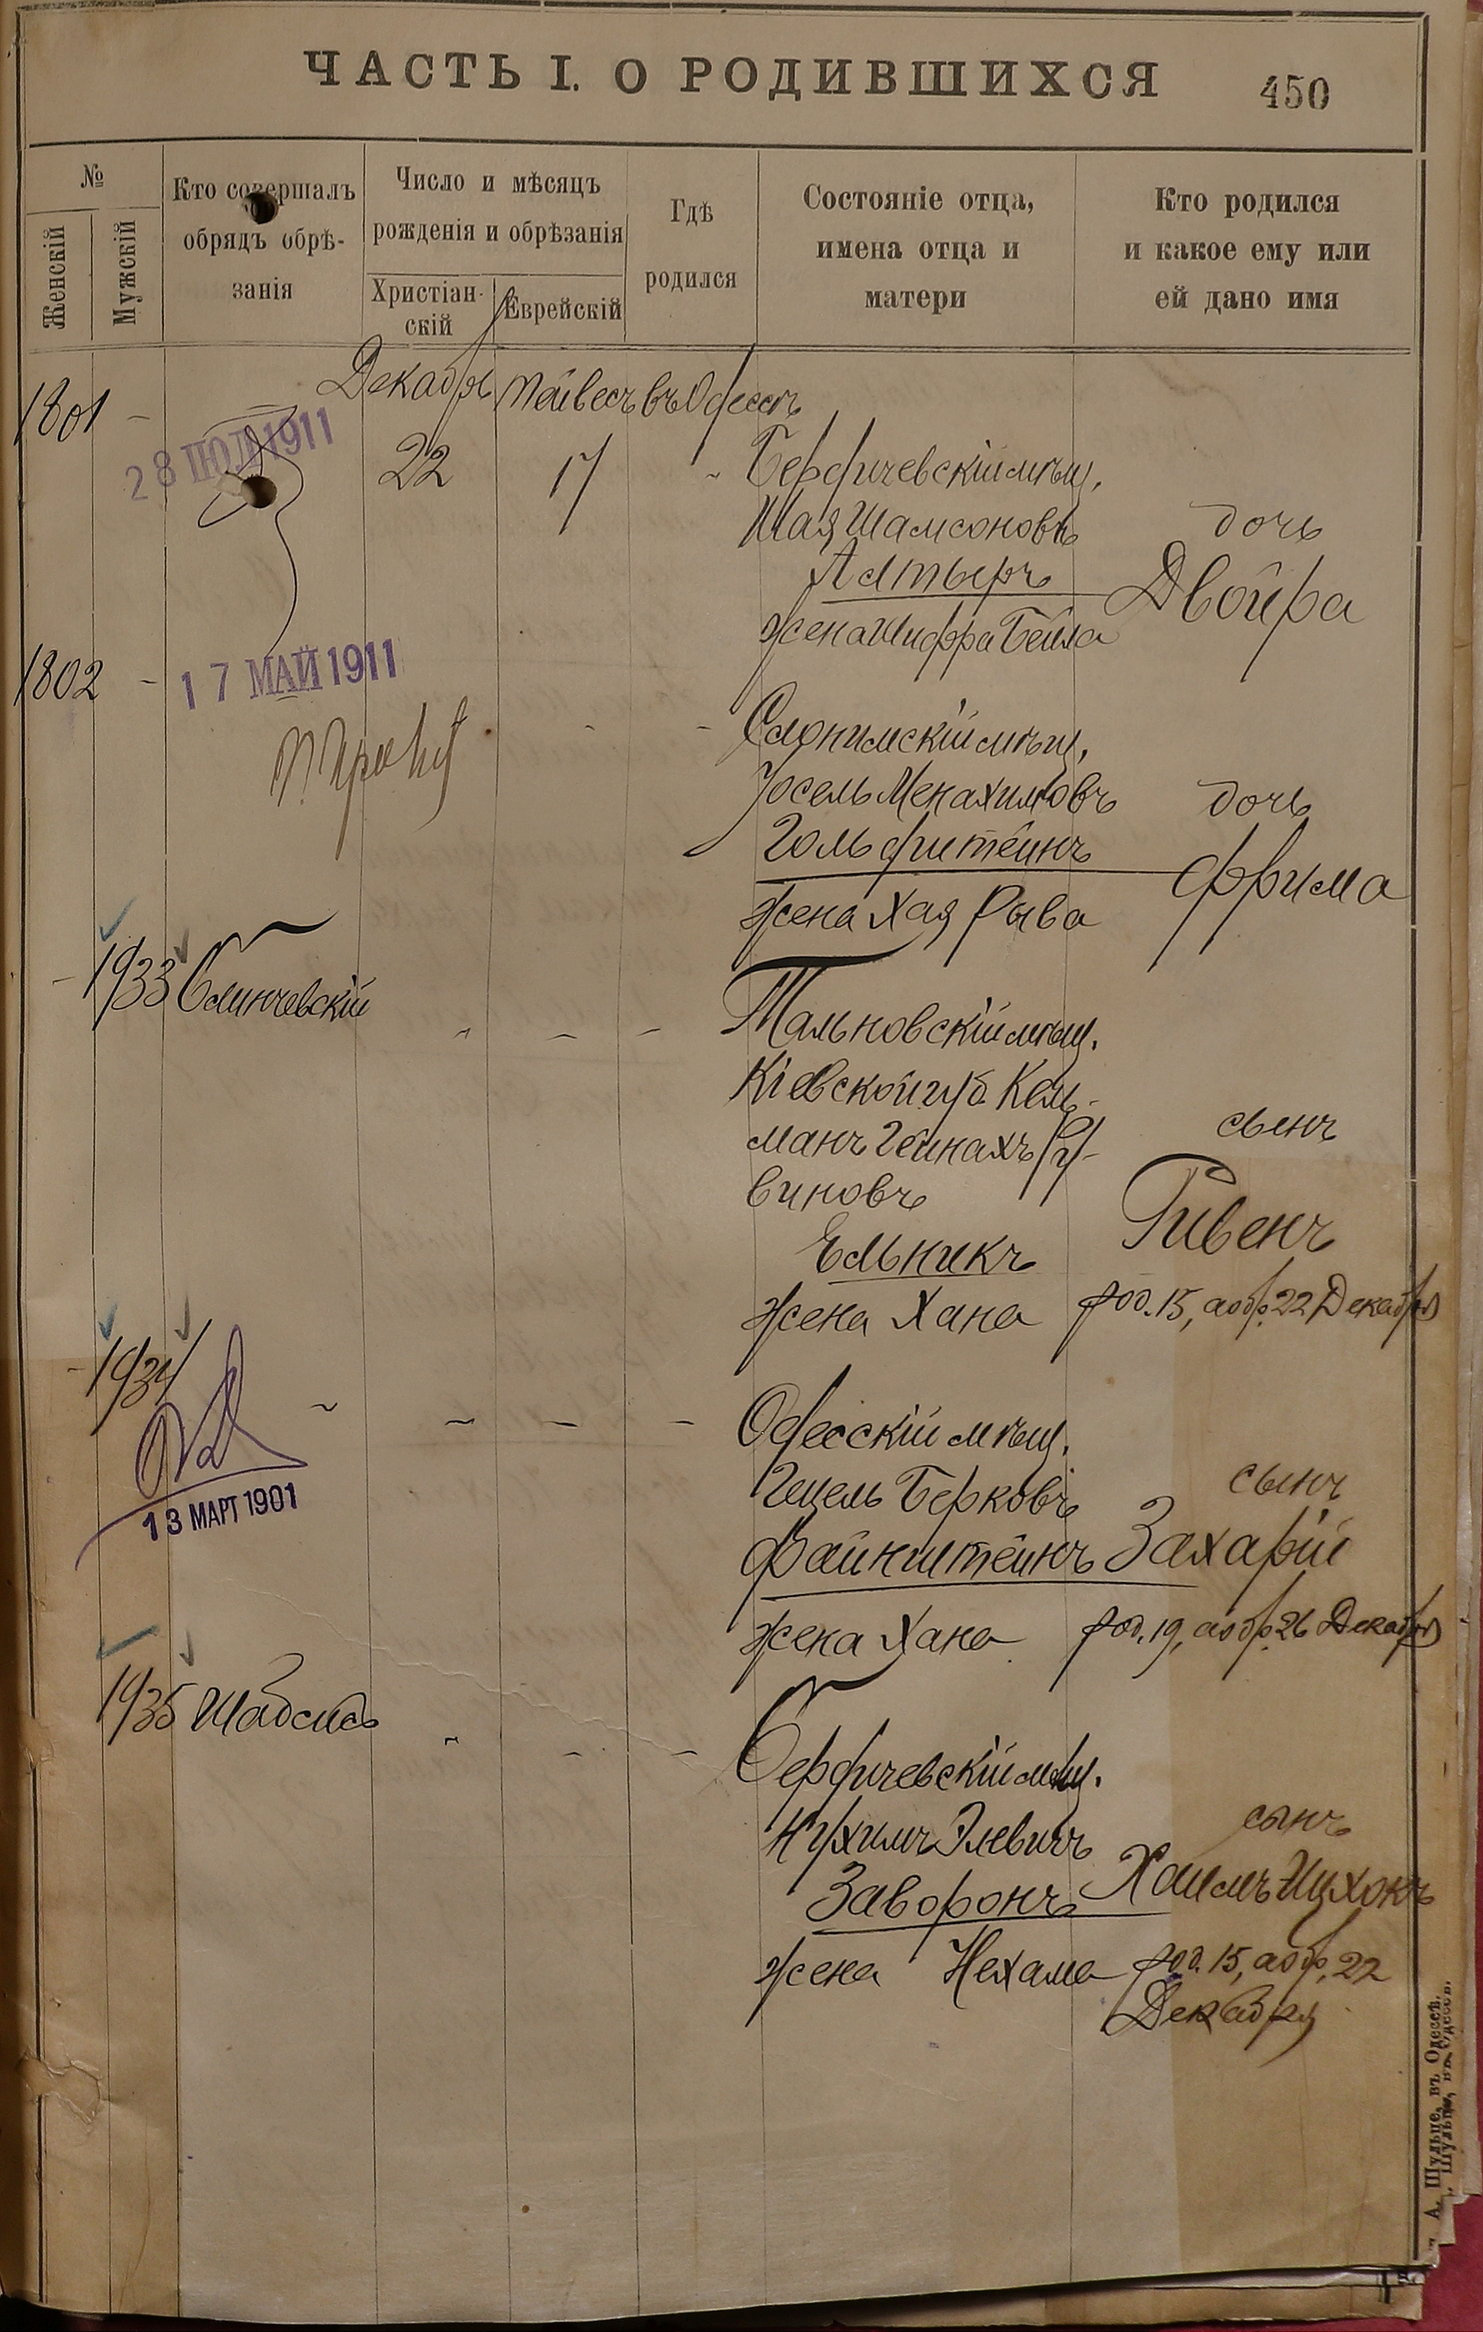 ЧАСТЬ I. О РОДИВШИХСЯ
450
№
Женскій
Мужскій
Кто совершалъ
обрядъ обрѣ-
занія
Число и мѣсяцъ
рожденія и обрѣзанія
Христіан-
скій
Еврейскій
Гдѣ
родился
Состояніе отца,
имена отца и
матери
Кто родился
и какое ему или
ей дано имя
Декабрь Тейвесъ въ Одессѣ
1801 -
28 ІЮЛ 1911
22 17 - Бердичевскій мѣщ.
Шая Шамсоновъ дочь
Алтыръ Двойра
жена Шифра Бейла
1802 -
17 МАЙ 1911
- - Слонимскій мѣщ.
Іосель Менахимовъ дочь
Гольдштейнъ Фрима
жена Хая Рыва
- 1933 Слинчевскій
- - - Тальновскій мѣщ.
Кіевской губ. Кель-
манъ Гейнахъ Ру- сынъ
виновъ Рувенъ
Ельникъ
жена Хана род. 15, а обр. 22 Декабря
- 1934 - - - - Одесскій мѣщ.
13 МАРТ 1901
Гецель Берковъ сынъ
Файнштейнъ Захарій
жена Хана род. 19, а обр. 26 Декабря
1935 Шабсисъ - - - Бердичевскій мѣщ.
Нухимъ Элевичъ сынъ
Заворонъ Хаимъ Ицхокъ
жена Нехама род. 15, а обр. 22
Декабря
А. Шульце, въ Одессѣ.